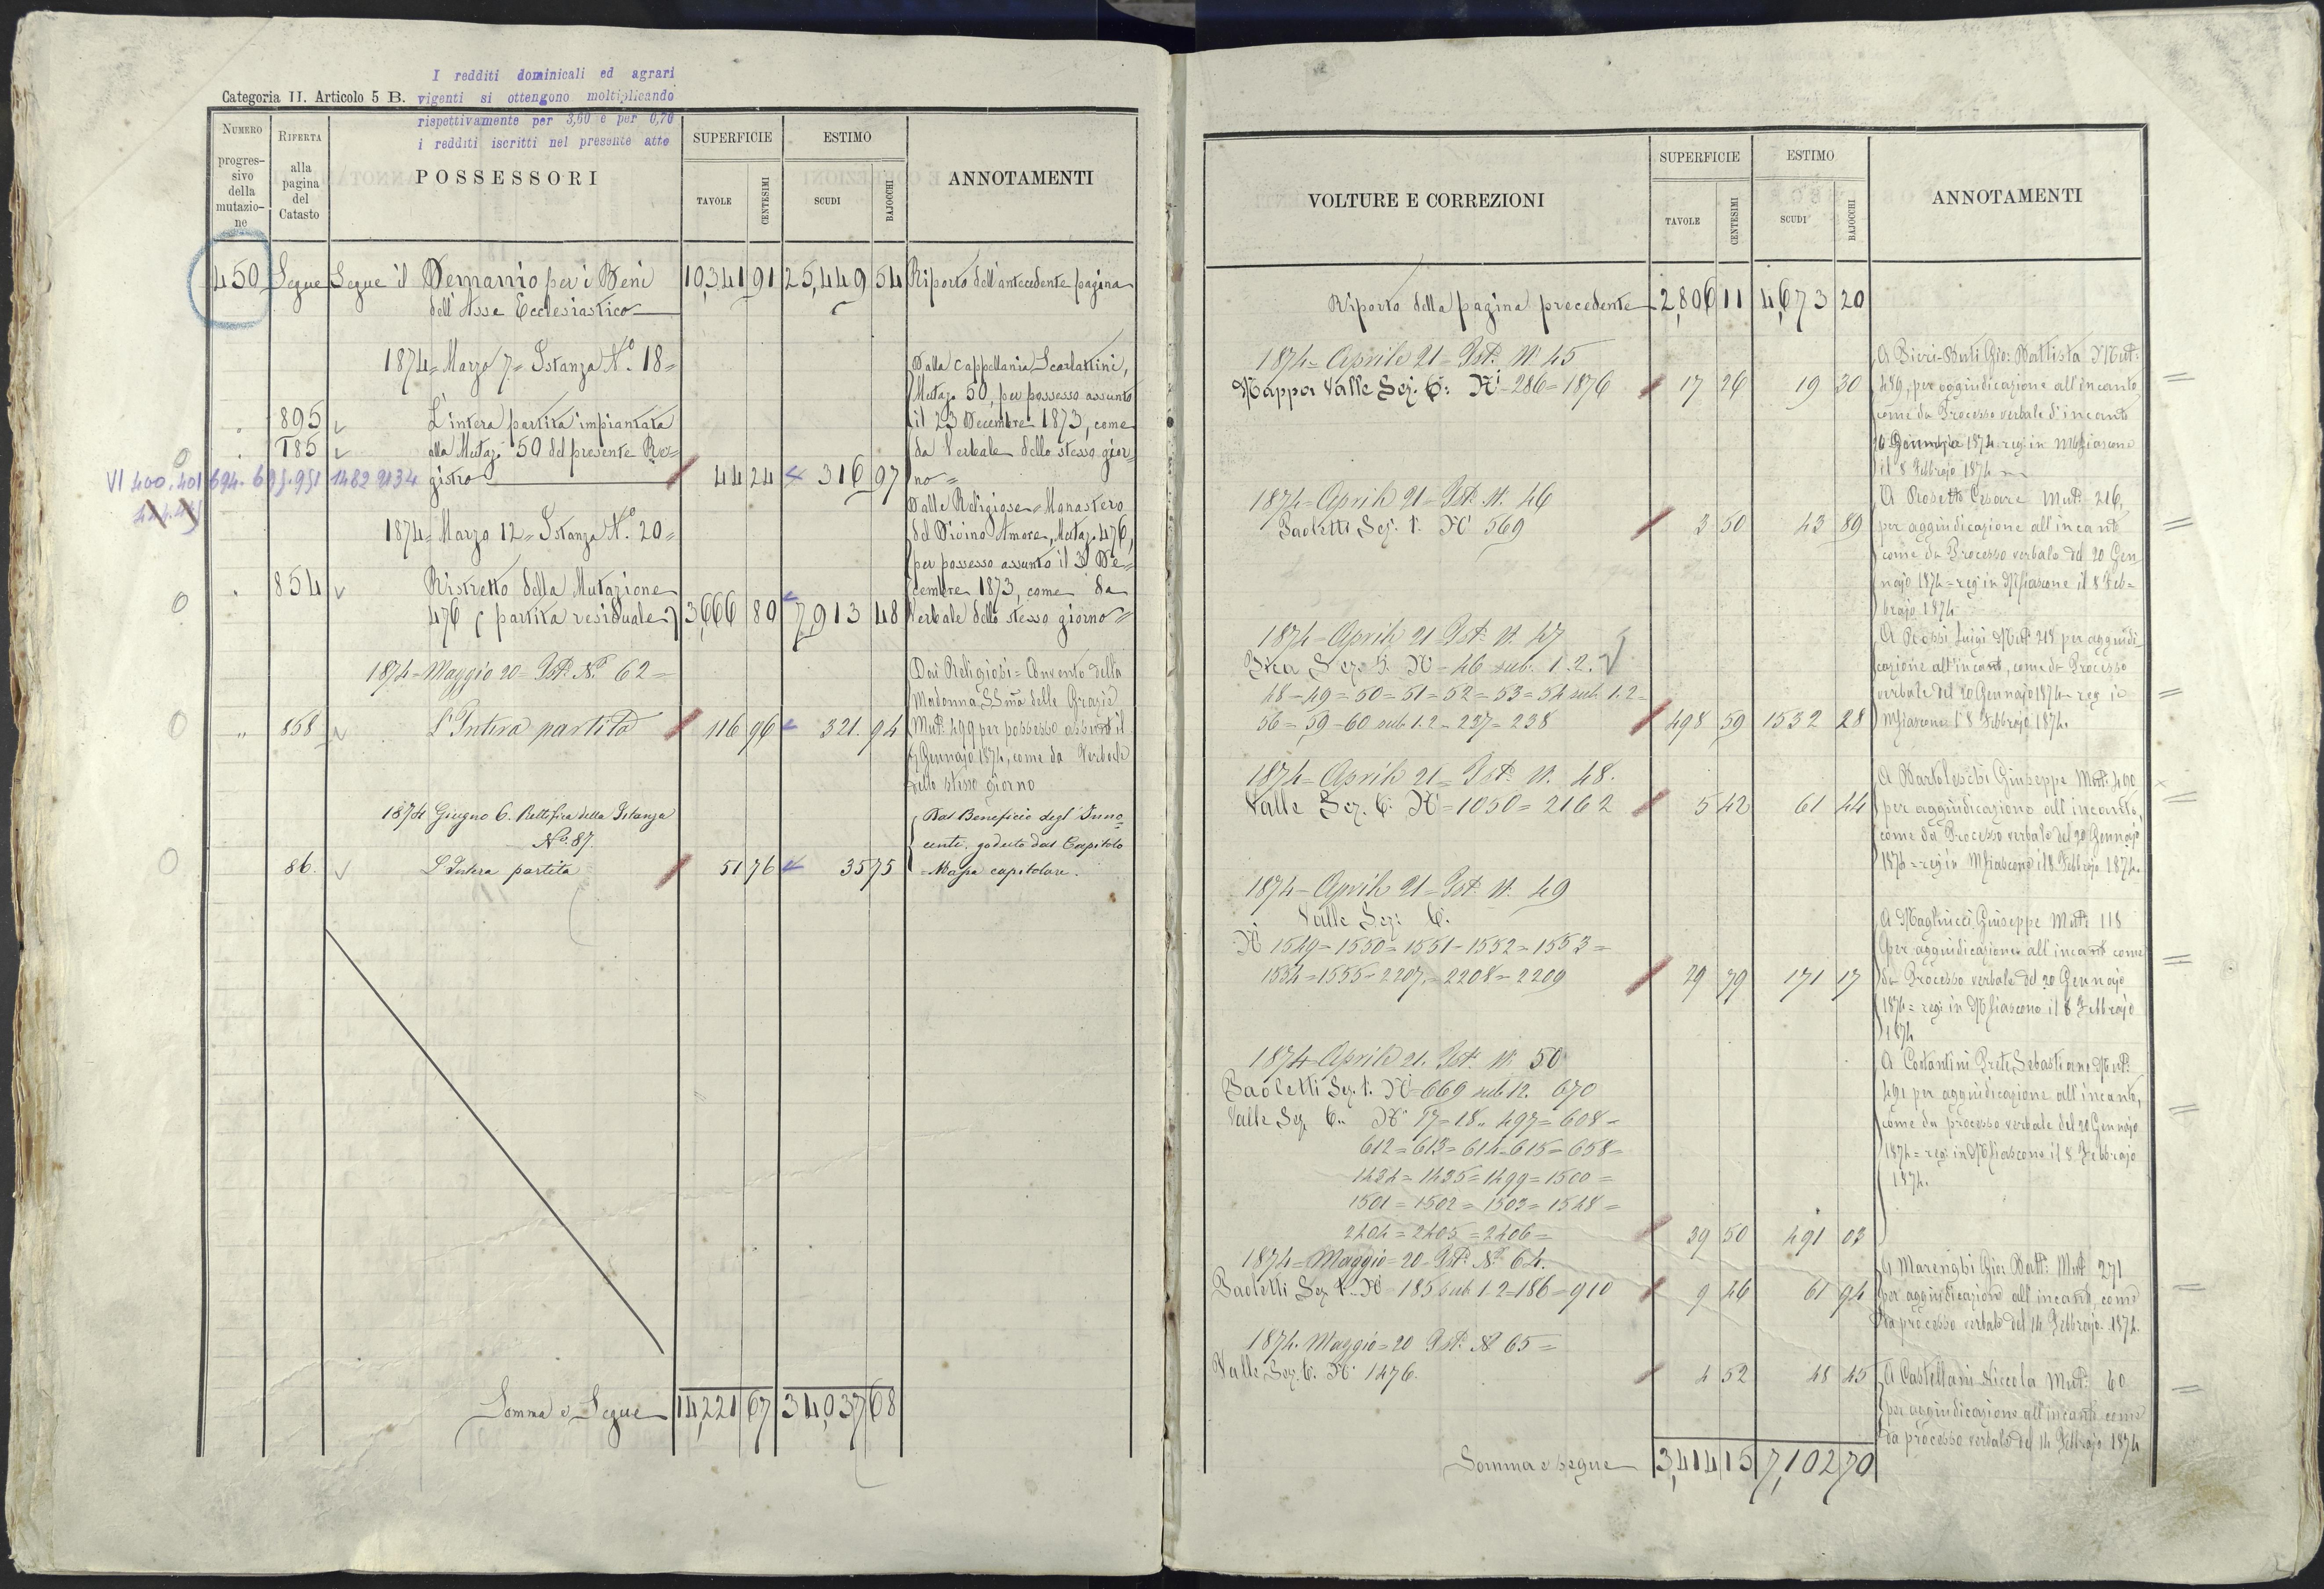 I redditi dominicali ed agrari
Categoria II. Articolo 5 B. vigenti si ottengono moltiplicando
rispettivamente per 3,60 e per 0,70
i redditi iscritti nel presente atto
NUMERO progressivo della mutazione
RIFERTA alla pagina del Catasto
POSSESSORI
SUPERFICIE
TAVOLE CENTESIMI
ESTIMO
SCUDI BAJOCCHI
ANNOTAMENTI
450 Segue Segue il Demanio per i Beni 10,341 91 25,449 54 Riporto dell'antecedente pagina
dell'Asse Ecclesiastico
1874 = Marzo 7 = Istanza N.º 18 = Dalla Cappellania Scarlattini,
Mutaz. 50, per possesso assunto
895 L'intera partita impiantata il 23 Decembre 1873, come
T85 alla Mutaz. 50 del presente Re= da Verbale dello stesso gior=
VI 400.401 694. 695. 951 1482 2134 gistro 44 24 316 97 no =
Dalle Religiose = Monastero
1874 = Marzo 12 = Istanza N.º 20 = del Divino Amore, Mutaz. 476,
per possesso assunto il 3 De=
854 Ristretto della Mutazione cembre 1873, come da
476 (partita residuale) 3,666 80 7913 48 Verbale dello stesso giorno =
1874 = Maggio 20 = Ist. Nº 62 = Dai Religiosi = Convento della
Madonna SSma delle Grazie
" 858 L'Intera partita 116 96 321. 94 Mut. 499 per possesso assunto il
Gennajo 1874, come da Verbale
dello stesso giorno
1874 Giugno 6. Rettifica della Istanza Dal Beneficio degl'Inno=
Nº 87. centi, goduto dal Capitolo
86. L'Intera partita 51 76 35 75 Massa capitolare.
Somma e Segue 14,221 67 34,037 68
VOLTURE E CORREZIONI
SUPERFICIE
TAVOLE CENTESIMI
ESTIMO
SCUDI BAJOCCHI
ANNOTAMENTI
Riporto della pagina precedente 2,806 11 4,673 20
1874 = Aprile 21 = Ist. N. 45 A Gio: Battista Mut:
Mappa Valle Sez. 6: Nⁱ 286 = 1876 17 26 19 30 489, per aggiudicazione all'incanto
come da Processo verbale d'incanto
Gennajo 1874 reg. in Mfiascone
il 8 Febbrajo 1874
1874 = Aprile 21 = Ist. N. 46 A Rosetto Cesare Mut. 216,
Paoletti Sez. 1. Nº 569 3 50 43 89 per aggiudicazione all'incanto
come da Processo verbale del 20 Gen
najo 1874 = reg. in Mfiascone il 8 Feb=
brajo 1874
1874 = Aprile 21 Ist. N. 47 A Rossi Luigi Mut. 218 per aggiudi
Sez. 5. Nº = 46 sub. 1.2. cazione all'incanto, come da Processo
48 = 49 = 50 = 51 = 52 = 53 = 54 sub. 1.2 = verbale del 20 Gennajo 1874 reg. in
56 = 59 = 60 sub. 1.2 = 237 = 238 498 59 1532 28 Mfiascone l'8 Febbrajo 1874.
1874 = Aprile 21 = Ist. N. 48. A Bartoleschi Giuseppe Mut. 400
Valle Sez. 6. Nⁱ = 1050 = 2162 5 42 61 44 per aggiudicazione all'incanto,
come da Processo verbale del 20 Gennajo
1874 = reg. in Mfiascone il 8 Febbrajo 1874.
1874 = Aprile 21 = Ist. N. 49
Valle Sez: 6. A Magliucci Giuseppe Mut. 118
Nⁱ 1549 = 1550 = 1551 = 1552 = 1553 = per aggiudicazione all'incanto come
1554 = 1555 = 2207 = 2208 = 2209 29 79 171 17 da Processo verbale del 20 Gennajo
1874 = reg. in Mfiascone il 8 Febbrajo
1874
1874 Aprile 21. Ist. N. 50 A Costantini Prete Sebastiano Mut.
Paoletti Sez. 1. Nⁱ 669 sub 12. 670 491 per aggiudicazione all'incanto,
Valle Sez. 6. Nⁱ 17 = 18 = 497 = 608 = come da processo verbale del 20 Gennajo
612 = 613 = 614 = 615 = 658 = 1874 = reg. in Mfiascone il 8 Febbrajo
1434 = 1435 = 1499 = 1500 = 1874.
1501 = 1502 = 1503 = 1548 =
2404 = 2405 = 2406 = 39 50 491 03
1874 = Maggio = 20 = Ist. Nº 64. A Marenghi Gio: Batt: Mut. 271
Paoletti Sez. 1. Nⁱ 185 sub. 1.2 = 186 = 910 9 46 61 94 per aggiudicazione all'incanto, come
da processo verbale del 14 Febbrajo 1874.
1874. Maggio = 20 Ist. Nº 65 =
Valle Sez. 6. Nⁱ 1476. 4 52 48 45 A Castellani Niccola Mut. 60
per aggiudicazione all'incanto come
da processo verbale del 14 Febbrajo 1874
Somma e segue 3,414 15 7,102 70